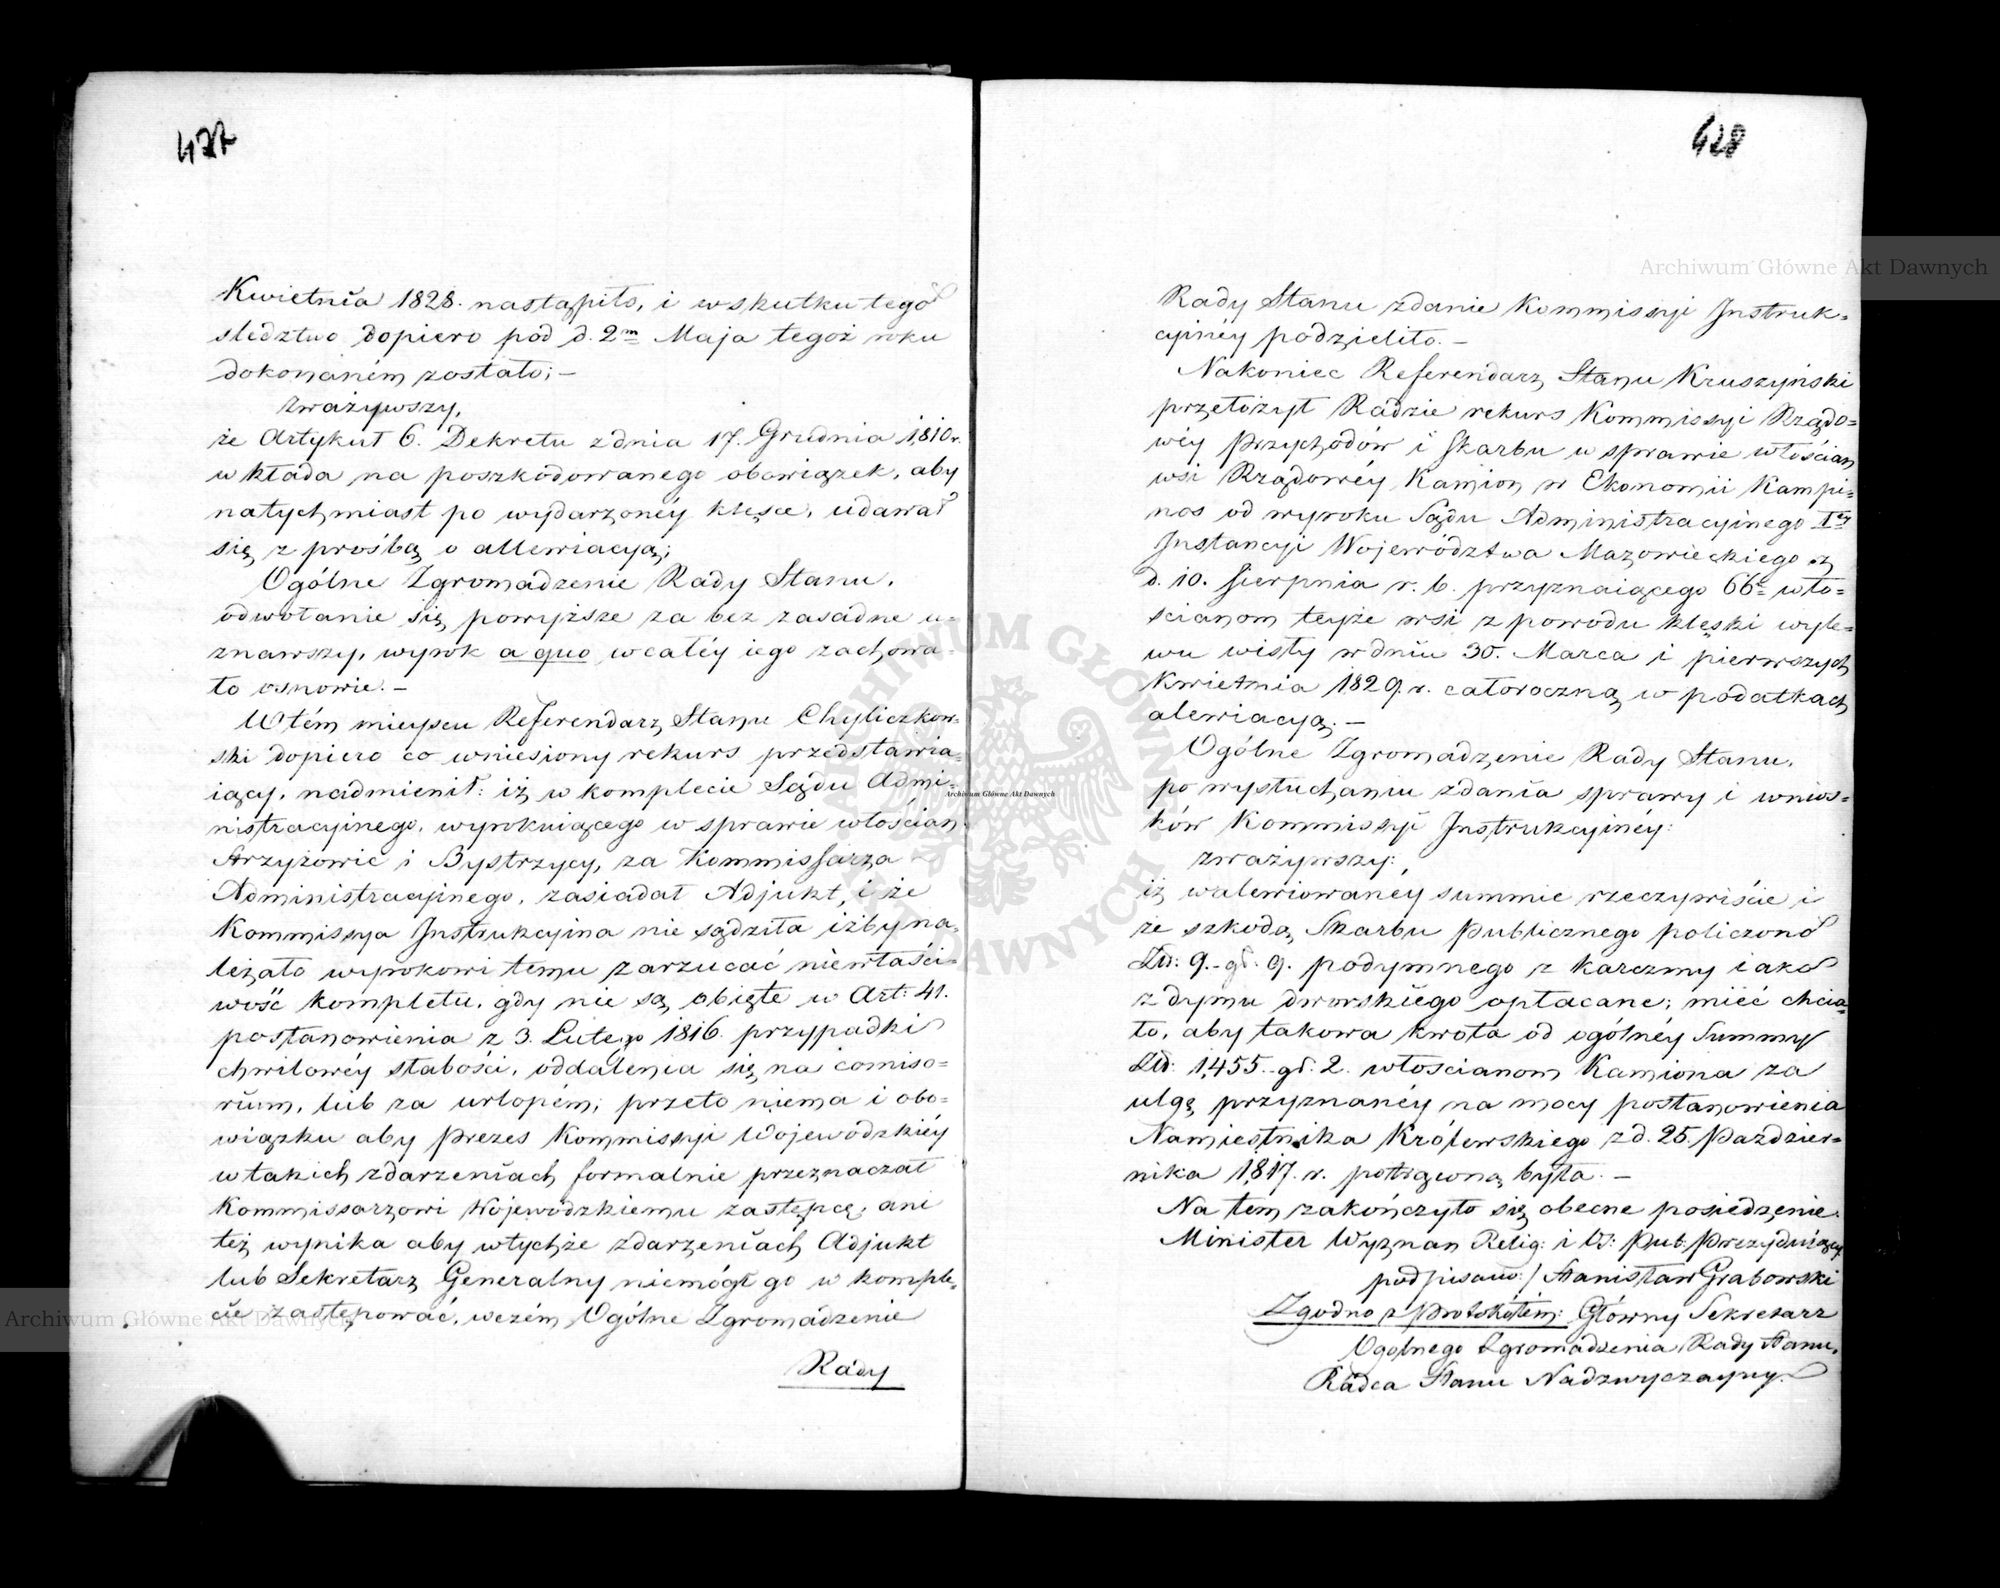 427
Kwietnia 1828. nastąpiło, i w skutku tego
śledztwo dopiero pod d. 2m Maja tegoż roku
dokonaném zostało; –
zważywszy,
że Artykuł 6. Dekretu z dnia 17. Grudnia 1810 r.
wkłada na poszkodowanego obowiązek, aby
natychmiast po wydarzonéy klęsce, udawał
się z prośbą o allewiacyą;
Ogólne Zgromadzenie Rady Stanu,
odwołanie się powyższe za bez zasadne u-
znawszy, wyrok a quo w całéy iego zachowa-
ło osnowie. –
W tém mieyscu Referendarz Stanu Chyliczkow-
ski dopiero co wniesiony rekurs przedstawia-
iący, nadmienił: iż w komplecie Sądu Admi-
nistracyinego, wyrokuiącego w sprawie włościan
Strzyżowic i Bystrzycy, za Kommissarza
Administracyinego, zasiadał Adjukt, i że
Kommissya Instrukcyina nie sądziła iżby na-
leżało wyrokowi temu zarzucać niewłaści-
wość kompletu, gdy nie są obięte w Art: 41.
postanowienia z 3. Lutego 1816. przypadki
chwilowéy słabości, oddalenia się na comiso-
rium, lub za urlopém; przeto niema i obo-
wiązku aby Prezes Kommissyi Wojewódzkiéy
w takich zdarzeniach formalnie przeznaczał
Kommissarzowi Wojewódzkiemu zastępcę, ani
też wynika aby w tychże zdarzeniach Adjukt
lub Sekretarz Generalny niemógł go w komple-
cie zastępować, wczém Ogólne Zgromadzenie
Rady
428
Rady Stanu zdanie Kommissyi Instruk-
cyinéy podzieliło. –
Nakoniec Referendarz Stanu Kruszyński
przełożył Radzie rekurs Kommissyi Rządo-
wéy Przychodów i Skarbu w sprawie włościan
wsi Rządowéy Kamion w Ekonomii Kampi-
nos od wyroku Sądu Administracyinego Iéy
Instancyi Województwa Mazowieckiego z
d. 10. Sierpnia r. b. przyznaiącego 66. wło-
ścianom teyże wsi z powodu klęski wyle-
wu wisły w dniu 30. Marca i pierwszych
Kwietnia 1829. r. całoroczną w podatkach
alewiacyą. –
Ogólne Zgromadzenie Rady Stanu,
po wysłuchaniu zdania sprawy i wnios-
ków Kommissyi Instrukcyinéy:
zważywszy:
iż w alewiowanéy summie rzeczywiście i
ze szkodą Skarbu Publicznego policzono
Zł: 9. gr. 9. podymnego z karczmy iako
z dymu dworskiego opłacane; mieć chcia-
ło, aby takowa kwota od ogólnéy Summy
Zł: 1,455. gr. 2. włoscianom Kamiona za
ulgę przyznanéy na mocy postanowienia
Namiestnika Królewskiego z d. 25. Pazdzier-
nika 1817. r. potrąconą była. –
Na tem zakończyło się obecne posiedzenie.
Minister Wyznan Relig: i Oś: Pub: Prezyduiący
podpisano:/ Stanisław Grabowski
Zgodno z Protokółém: Główny Sekretarz
Ogolnego Zgromadzenia Rady Stanu,
Radca Stanu Nadzwyczayny.
Archiwum Główne Akt Dawnych
Archiwum Główne Akt Dawnych
Archiwum Główne Akt Dawnych
ARCHIWUM GŁÓWNE AKT DAWNYCH